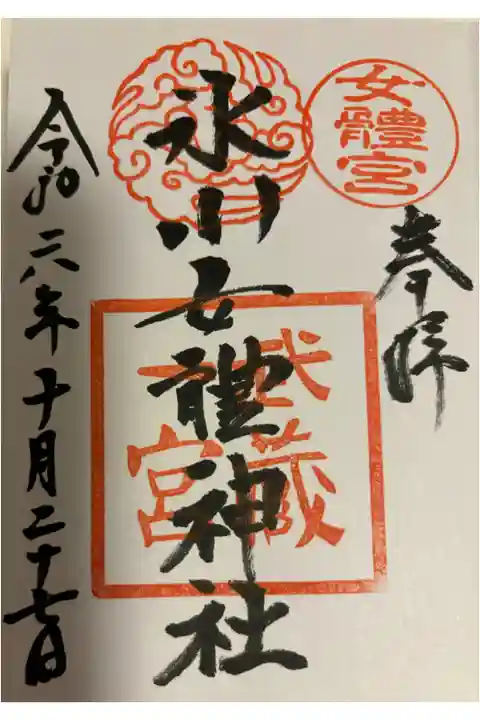 女體宮
奉拝
氷川女體神社
武蔵
一宮
令和六年十月二十七日